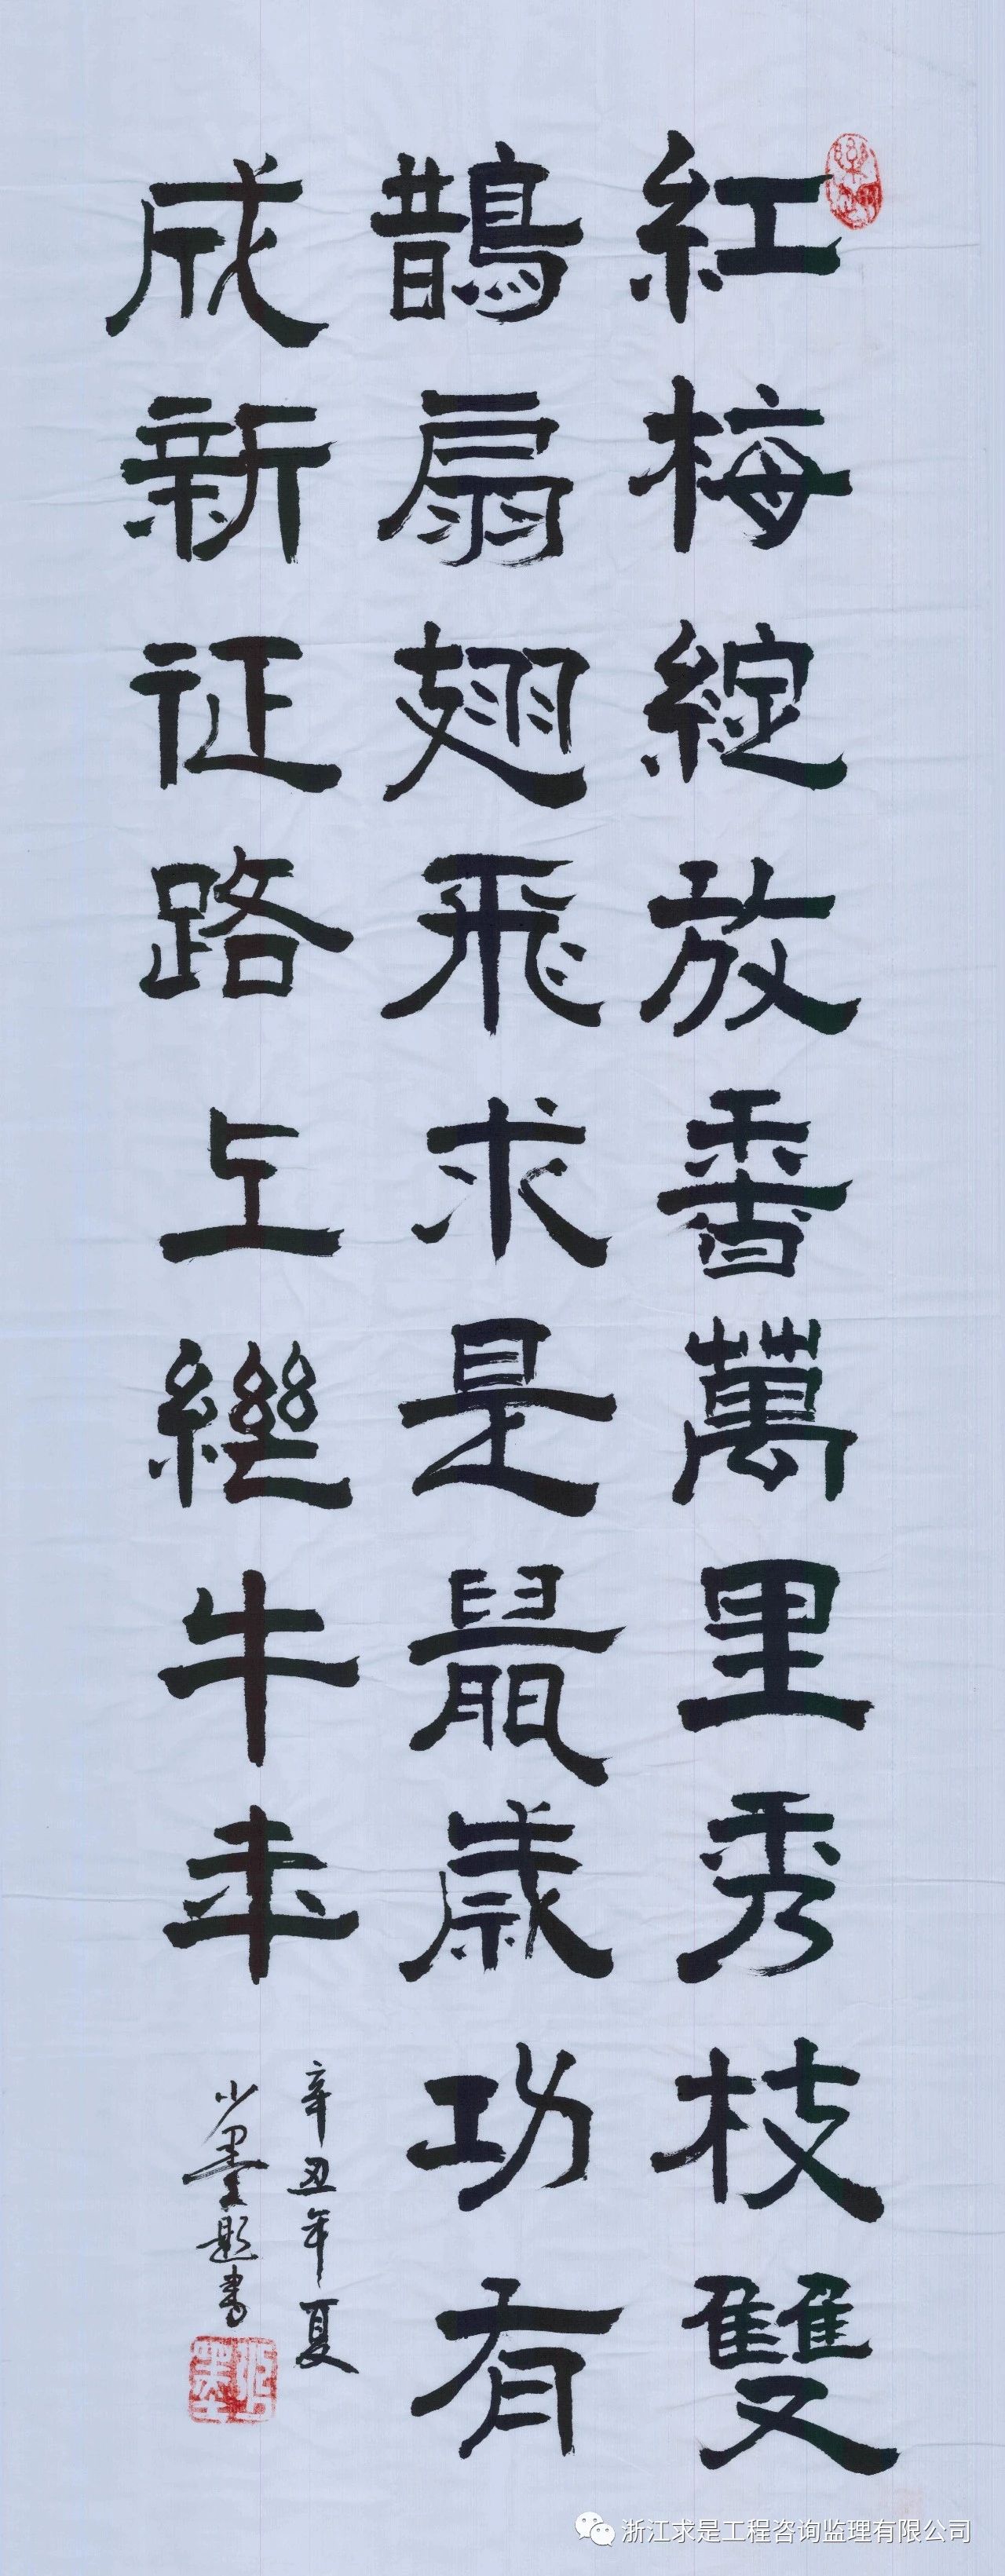 紅梅綻放香萬里秀枝雙
鵲扇翅飛求是鼠歲功有
成新征路上繼牛年
辛丑年夏
小墨題書
浙江求是工程咨询监理有限公司